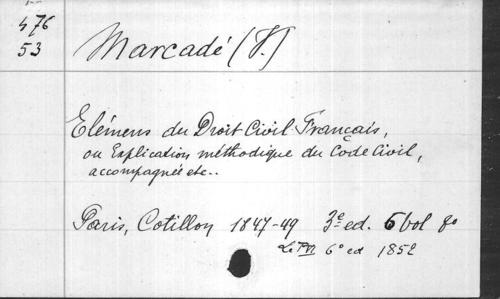 476
53
Marcadé (V.)
Elémens du Droit Civil Français,
ou Explication méthodique du Code Civil,
accompagnée etc..
Paris, Cotillon 1847-49 3e ed. 6 vol 8o
6e ed 1852